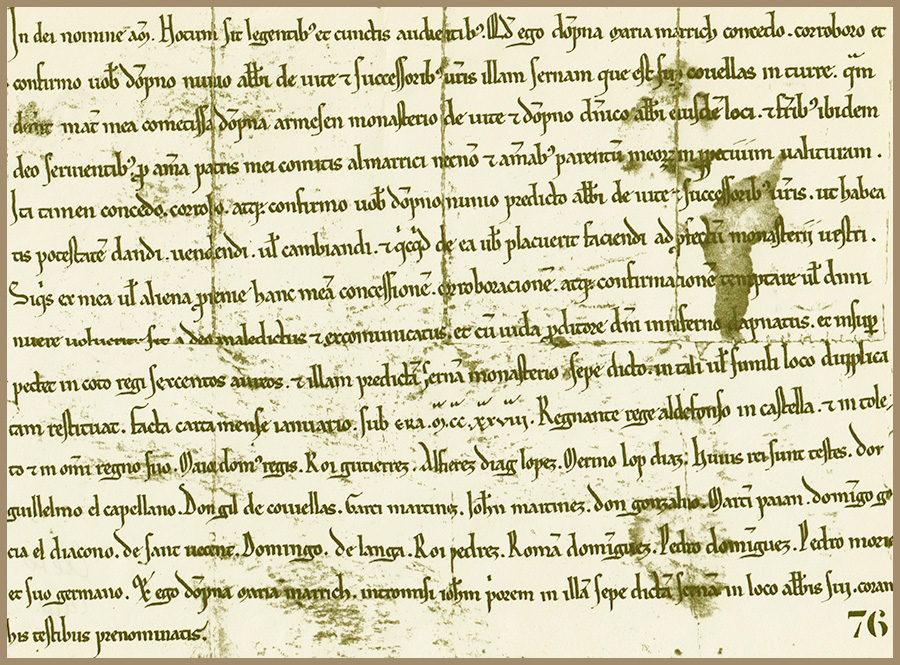 In dei nomine am̄. Notum sit legentib' et cunctis audientib'. Qđ ego dōpna maria manrich concedo. corroboro et
confirmo uob̄ dōpno nunio abb̄i de uite ⁊ successorib' ur̄is illam sernam que est couellas in turre. qm̄
mat̄ mea cometissa dōpna armesen monasterio de uite ⁊ dōpno dn̄ico abb̄i eiusdē loci. ⁊ fr̄ib' ibidem
deo seruientib'. p am̄a patris mei comitis almarrici necnō ⁊ am̄ab' parentū meoꝝ in ualituram.
Ita tamen concedo. corroꝺo. atqꝫ confirmo uob̄ dōpno nunio predicto abb̄i de uite ⁊ successorib' ur̄is. ut habea
tis potestatē dandi. uendendi. ul̄ cambiandi. ⁊ qcqd de ea ub̄ placuerit faciendi ad monasterii uestri.
Siqs ex mea ul̄ aliena pienie hanc meā concessionē. corroborationē. atqꝫ confirmationē temptare ul̄ dimi
nuere uoluerit sit a deo maledictus ⁊ excomunicatus. et cū iuda pditore dn̄i in inferno dapnatus. et insup
pectet in coto regi sexcentos aureos. ⁊ illam predictā sernā monasterio sepe dicto. in tali ul̄ simili loco duplica
tam restituat. facta carta mense ianuario. sub era. m̄. cc. xxviii. Regnante rege aldefonso in castella. ⁊ in tole,
to ⁊ in om̄i regno suo. Maiordom' regis. Roi gutierrez. Alfierez diag lopez. Merino lop diaz. Huius rei sunt testes. don
guillelmo el capellano. Don gil de couuellas. Garci martinez. Joh̄n martinez. don gonzaluo. Martī paian. domīgo ga
cia el diacono. de sant uocent. Domingo. de langa. Roi pedrez. Romā domīguez. Pedro domīguez. Pedro moro
et suo germano. Et ego dōpna maria manrich. intromisi ioh̄m priorem in illā sepe dictā sernā in loco abb̄is sui. coram
his testibus prenominatis.
76